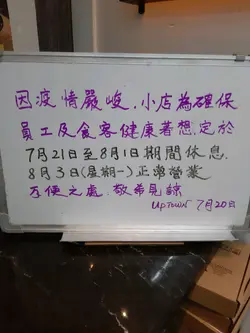 因疫情嚴峻，小店為確保
員工及食客健康著想，定於
7月21日至8月1日期間休息，
8月3日(星期一)正常營業
不便之處，敬希見諒
UPTOWN 7月20日